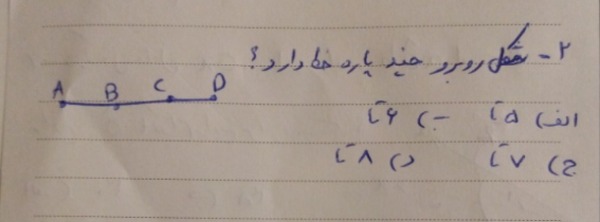 ۲- شکل روبرو چند پاره خط دارد؟
A B C D
الف) ۵ تا ب) ۶ تا
ج) ۷ تا د) ۸ تا